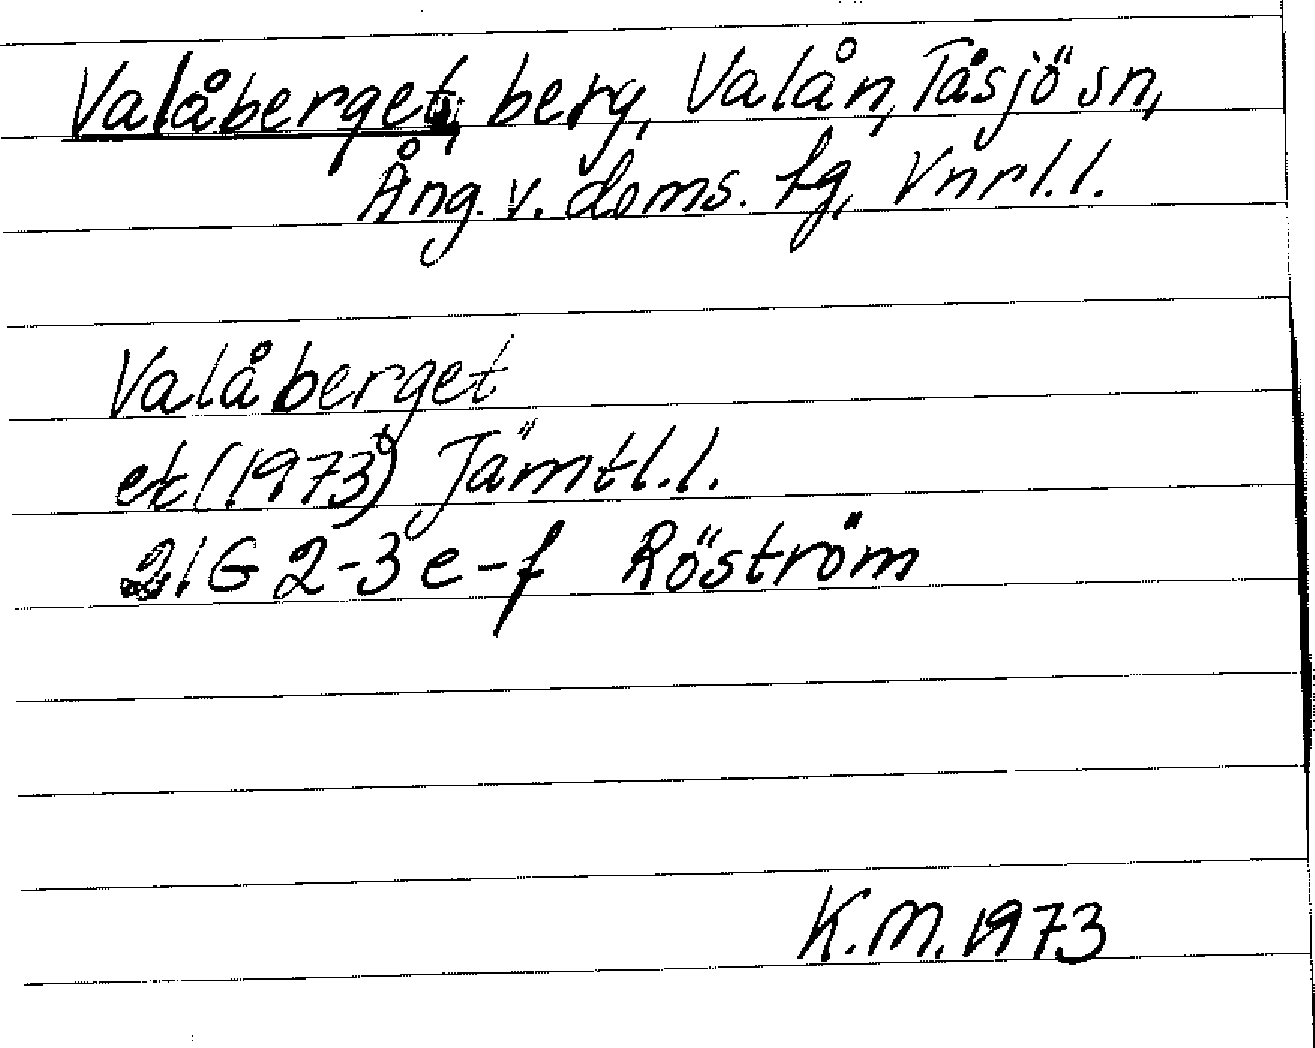 Valåberget, berg, Valån, Tåsjö sn,
Ång. v. doms. fg, Vnrl.l.
Valåberget
et (1973) Jämtl.l.
21G 2-3 e-f Röström
K.M. 1973